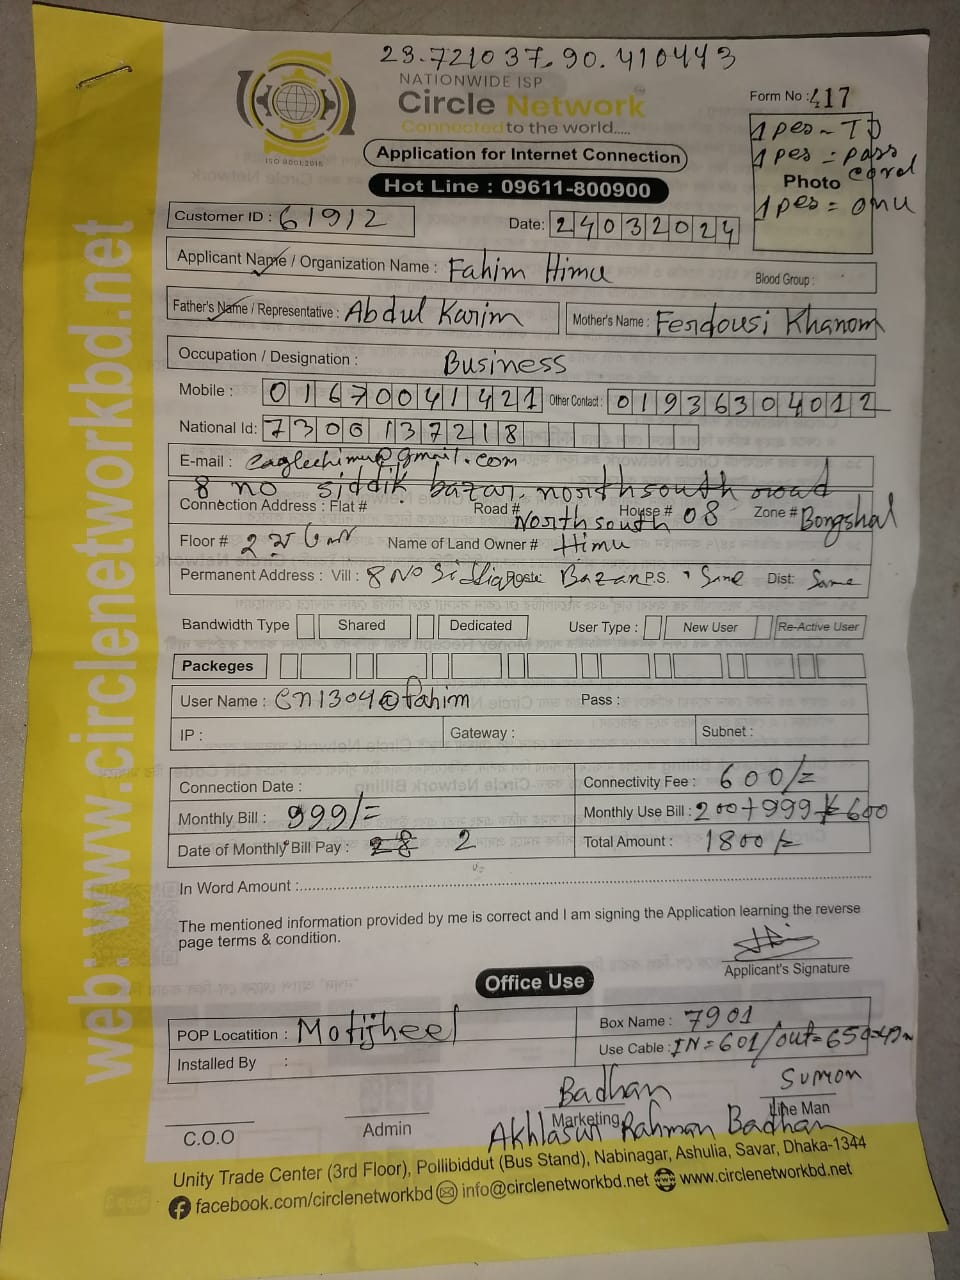 23.721037.90.410443
NATIONWIDE ISP
Circle Network
Connected to the world.....
ISO 9001:2015
Application for Internet Connection
Hot Line : 09611-800900
Form No : 417
1 pes - ID
1 pes = pass
Photo
1 pes = onu
Customer ID : 61912
Date: 24032024
Applicant Name / Organization Name : Fahim Himu
Blood Group :
Father's Name / Representative : Abdul Karim
Mother's Name : Ferdousi Khanom
Occupation / Designation : Business
Mobile : 01670041421 Other Contact : 01936304012
National Id: 7306137218
E-mail : eaglehimu@gmail.com
8 no siddik bazar, north south road
Connection Address : Flat # Road # North south House # 08 Zone # Bongshal
Floor # 2 Name of Land Owner # Himu
Permanent Address : Vill : 8 No Bazar P.S. Same Dist: Same
Bandwidth Type Shared Dedicated User Type : New User Re-Active User
Packeges
User Name : Cn1304@fahim Pass :
IP : Gateway : Subnet :
Connection Date : Connectivity Fee : 600/=
Monthly Bill : 999/= Monthly Use Bill : 200+999+600
Date of Monthly Bill Pay : 28 2 Total Amount : 1800/=
In Word Amount :
The mentioned information provided by me is correct and I am signing the Application learning the reverse
page terms & condition.
Applicant's Signature
Office Use
POP Locatition : Motijheel
Box Name : 7901
Installed By :
Use Cable : IN=601/out=650
Badhan
Sumon
C.O.O
Admin
Marketing
Line Man
Akhlasur Rahman Badhan
Unity Trade Center (3rd Floor), Pollibiddut (Bus Stand), Nabinagar, Ashulia, Savar, Dhaka-1344
facebook.com/circlenetworkbd info@circlenetworkbd.net www.circlenetworkbd.net
web: www.circlenetworkbd.net